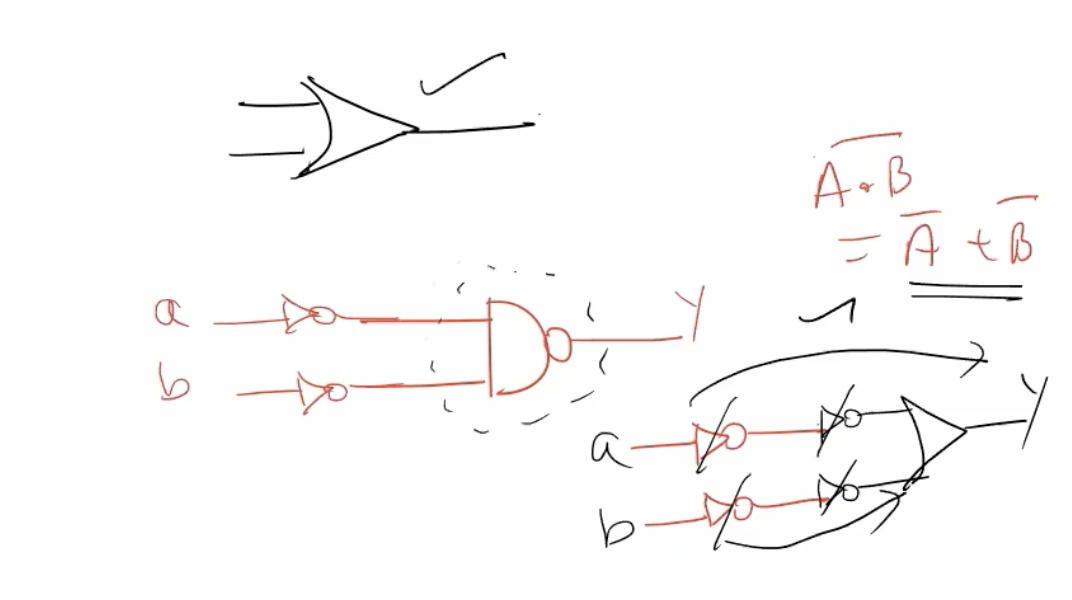 A̅·̅B̅
= A̅ + B̅
a
b
Y
a
b
Y